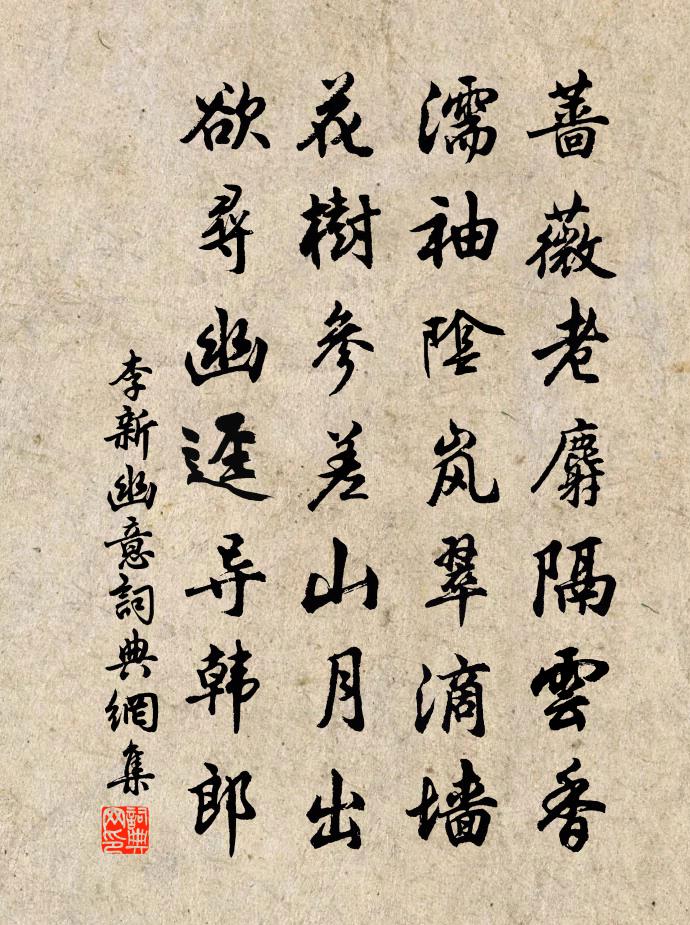 蔷薇老麝隔雲香
濡袖陰岚翠滴墙
花樹參差山月出
欲尋幽逕导韩郎
李新幽意詞典網集
詞典網印